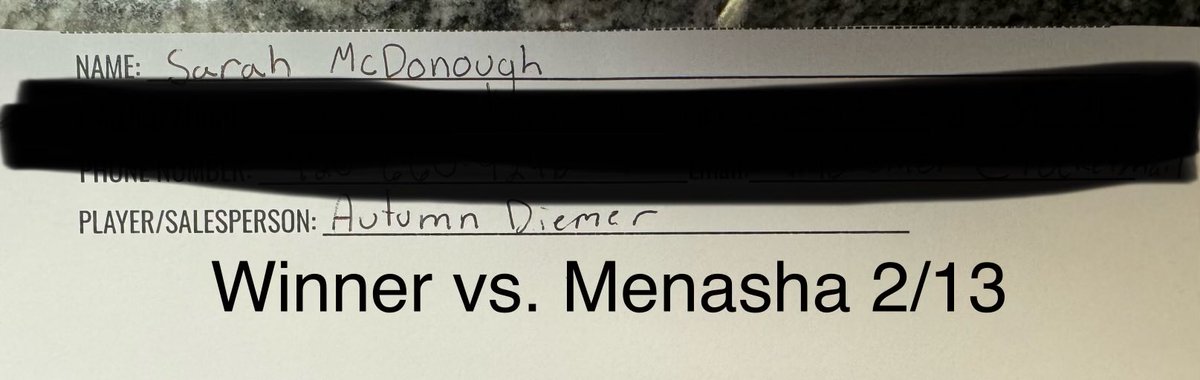 NAME: Sarah McDonough
PHONE NUMBER:
PLAYER/SALESPERSON: Autumn Diemer
Winner vs. Menasha 2/13